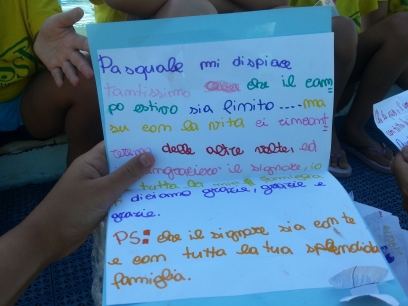 Pasquale mi dispiace
tantissimo che il cam
po estivo sia finito ....ma
su con la vita ci rincont
reremo delle altre volte, ed
ringrazierò il signore, io
e tutta la mia famiglia
ti diciamo grazie, grazie e
grazie.
PS: che il signore sia con te
e con tutta la tua splendida
famiglia.